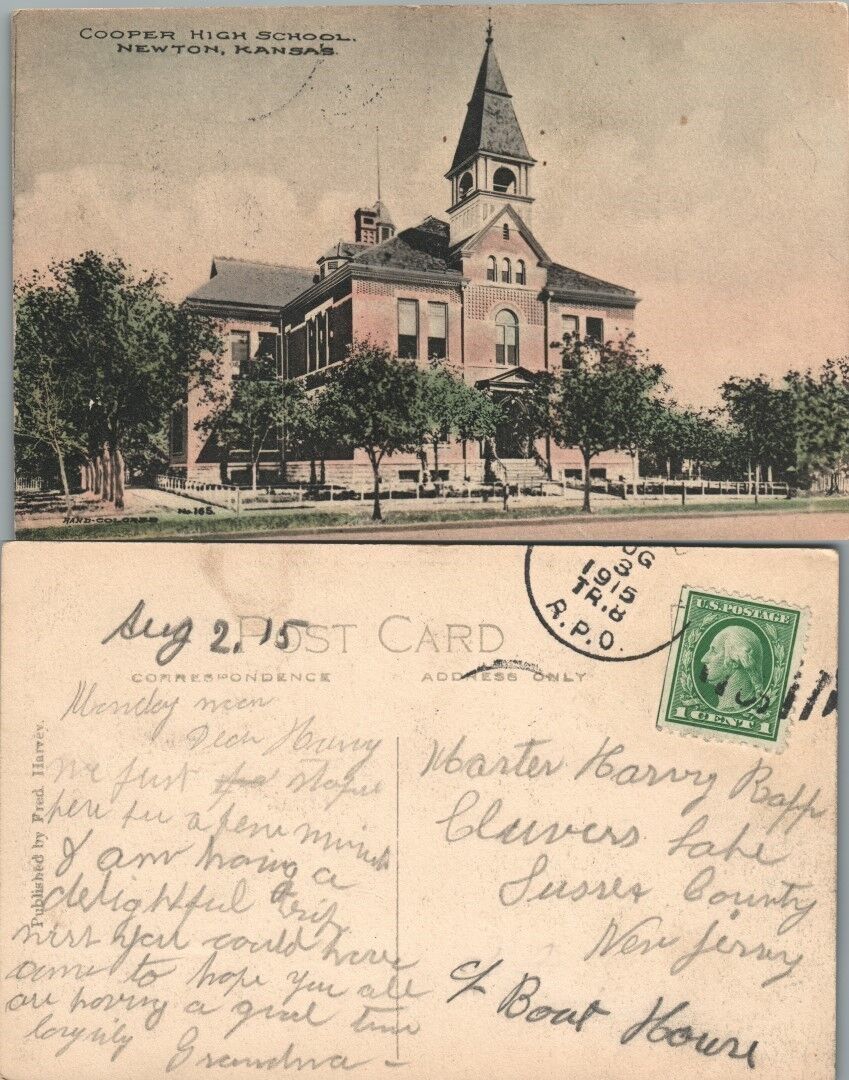 COOPER HIGH SCHOOL.
NEWTON, KANSAS.
HAND-COLORED
No. 165.
UG
3
1915
TR.8
R.P.O.
U.S. POSTAGE
1 CENT 1
Aug 2. 15
POST CARD
CORRESPONDENCE
ADDRESS ONLY
Published by Fred. Harvey.
Monday noon
Dear Harvy
We just stoped
here for a few minuts
I am having a
delightful Trip
wish you could have
came to hope you all
are having a good time
Grandma -
Master Harvy Rapp
Cluvers Lake
Sussex County
New Jersy
c/o Boat House